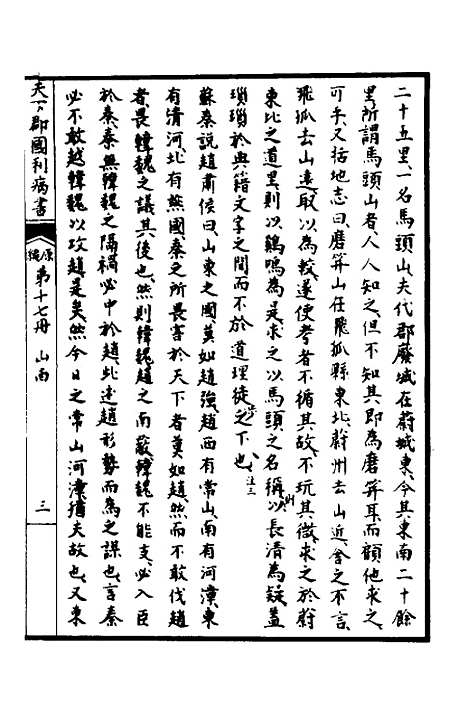 二十五里、一名馬頭山、夫代郡廢城在蔚城東、今其東南二十餘
里、所謂馬頭山者、人人知之、但不知其即為磨笄耳、而顧他求之、
可乎、又括地志曰、磨笄山在飛狐縣東北、蔚州去山近、舍之不言、
飛狐去山遠、取以為較、遂使考者不循其故、不玩其徵、求之於蔚
東北之道里、則以鷄鳴為是、求之以馬頭之名稱、則以長清為疑、蓋
瑣瑣於典籍文字之間、而不於道理徒步之下也、注三
蘇秦說趙肅侯曰、山東之國莫如趙強、趙西有常山、南有河漳、東
有清河、北有燕國、秦之所畏害於天下者莫如趙、然而不敢伐趙
者、畏韓魏之議其後也、然則韓魏趙之南蔽、韓魏不能支、必入臣
於秦、秦無韓魏之隔、禍必中於趙、此述趙形勢而為之謀也、言秦
必不敢越韓魏以攻趙是矣、然今日之常山河漳猶夫故也、又東
天下郡國利病書
原編
第十七冊
山南
三